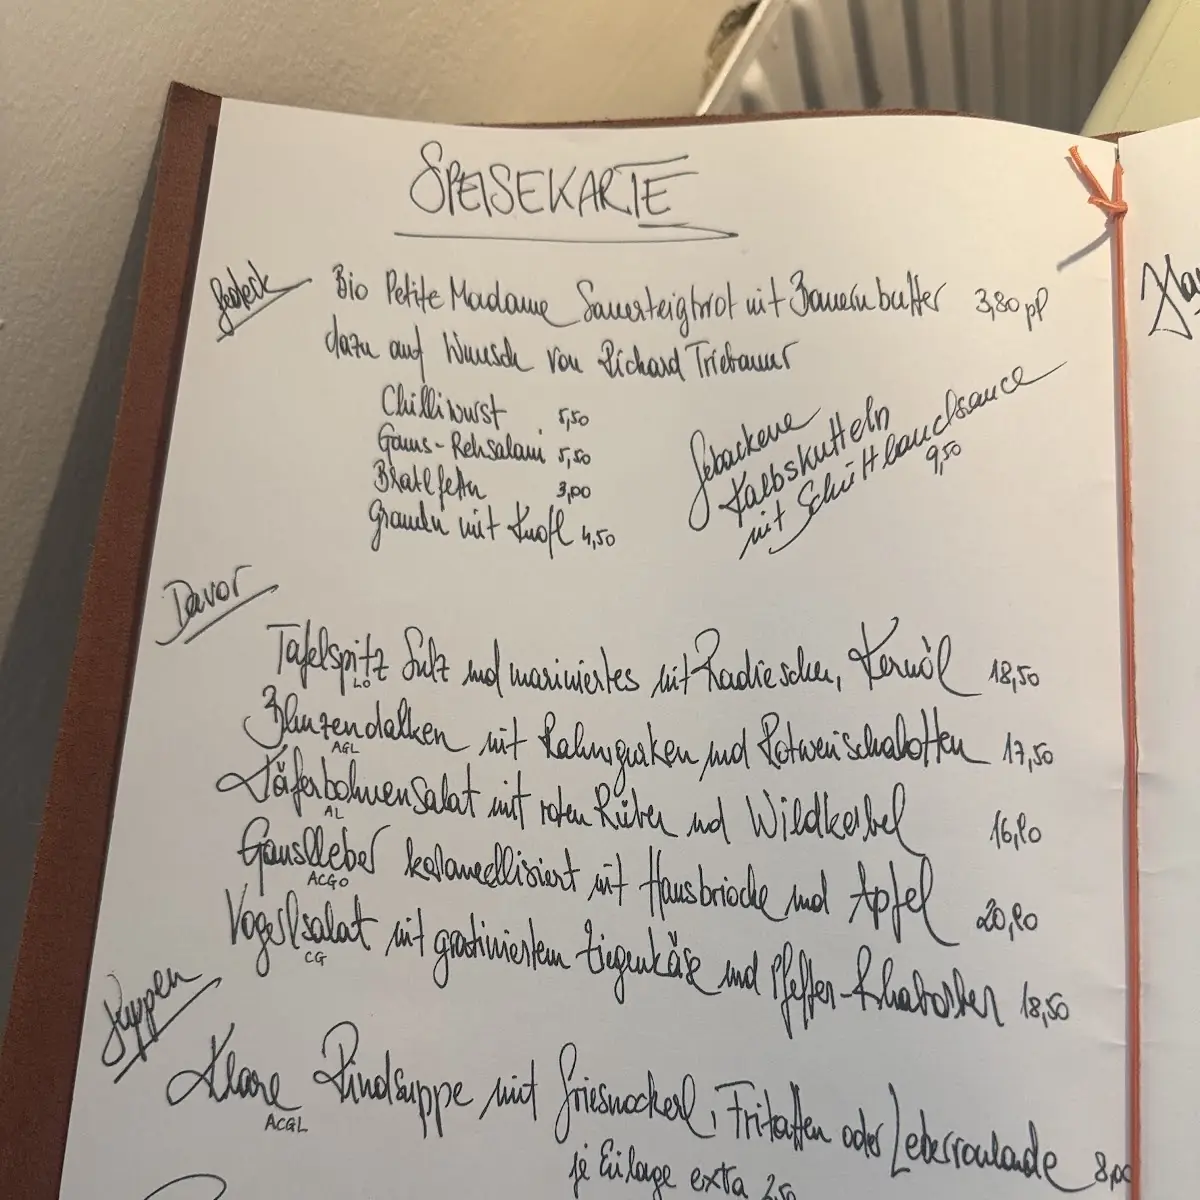 SPEISEKARTE
Gedeck
Bio Petite Madame Sauerteigbrot mit Bauernbutter 3,80 pP
dazu auf Wunsch von Richard Triebaumer
Chilliwurst 5,50
Gams-Rehsalami 5,50
Bratlfettn 3,00
Grameln mit Knofl 4,50
Gebackene
Kalbskutteln
mit Schnittlauchsauce
9,50
Davor
Tafelspitz Sulz und mariniertes mit Radieschen, Kernöl 18,50
LO
Blunzendalken mit Rahmgurken und Rotweinschalotten 17,50
AGL
Käferbohnensalat mit roten Rüben und Wildkerbel 16,80
AL
Gansleber karamellisiert mit Hausbrioche und Apfel 20,80
ACGO
Vogerlsalat mit gratiniertem Ziegenkäse und Pfeffer-Rhabarber 18,50
CG
Suppen
Klare Rindsuppe mit Griesnockerl, Fritatten oder Leberroulade 8,00
ACGL
je Einlage extra 2,50